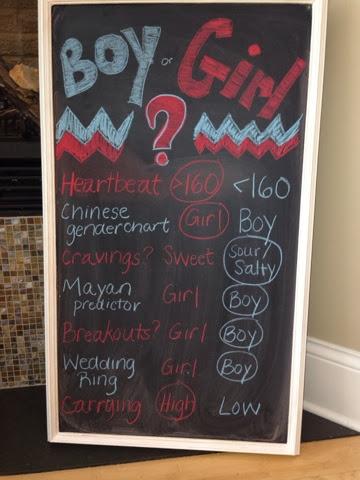 BOY or Girl
?
Heartbeat >160 <160
Chinese
genderchart Girl Boy
Cravings? Sweet Sour/
Salty
Mayan
predictor Girl Boy
Breakouts? Girl Boy
Wedding
Ring Girl Boy
Carrying High Low